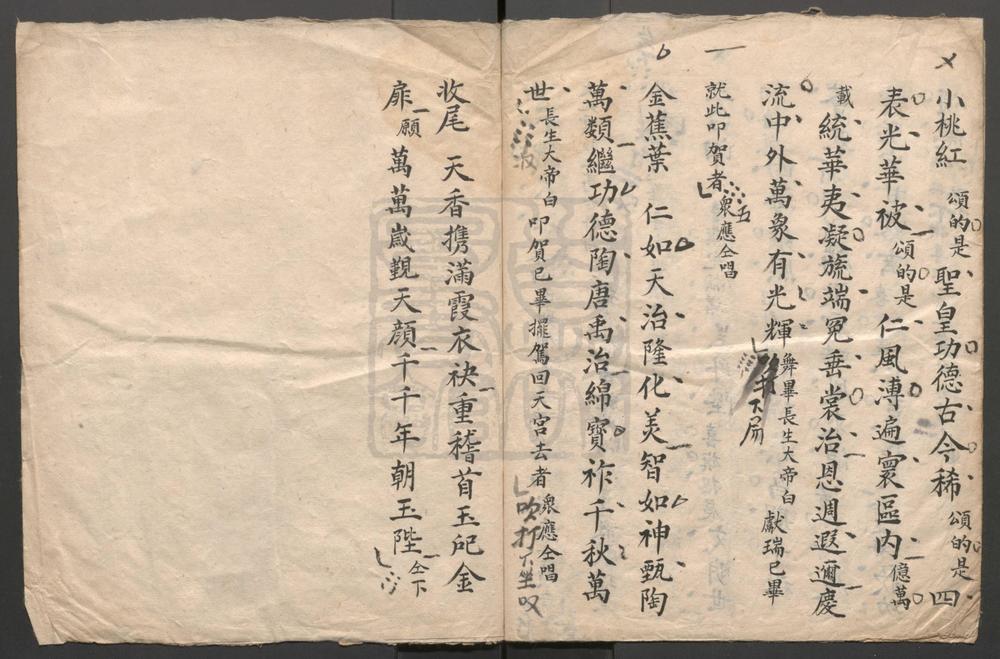 小桃紅 頌的是聖皇功德古今稀 頌的是四
表光華被 頌的是仁風溥遍寰區內 億萬
載統華夷凝旒端冕垂裳治恩週遐邇慶
流中外萬象有光輝 舞畢長生大帝白 獻瑞已畢
下局
就此叩賀者 衆應仝唱
五
金蕉葉 仁如天治隆化美智如神甄陶
萬類繼功德陶唐禹治綿寶祚千秋萬
世 長生大帝白 叩賀已畢擺駕回天宮去者 衆應仝唱
吹打下坐
收尾 天香携滿霞衣袂重稽首玉戺金
扉 願萬萬歲覲天顏千千年朝玉陛 仝下